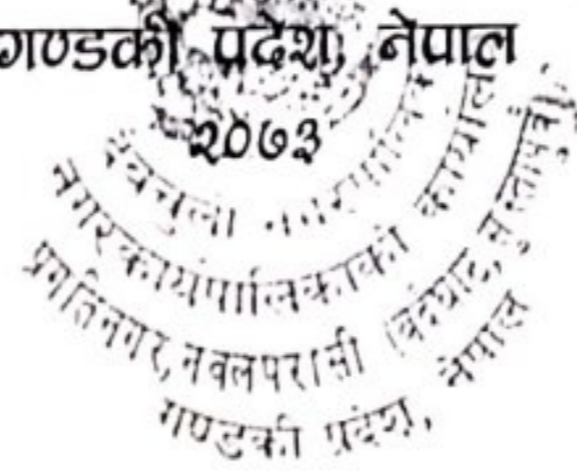 गण्डकी प्रदेश, नेपाल
२०७३
देवचुली नगरपालिका
नगर कार्यपालिकाको कार्यालय
प्रगतिनगर, नवलपरासी (बर्दघाट, सुस्तापूर्व)
गण्डकी प्रदेश, नेपाल